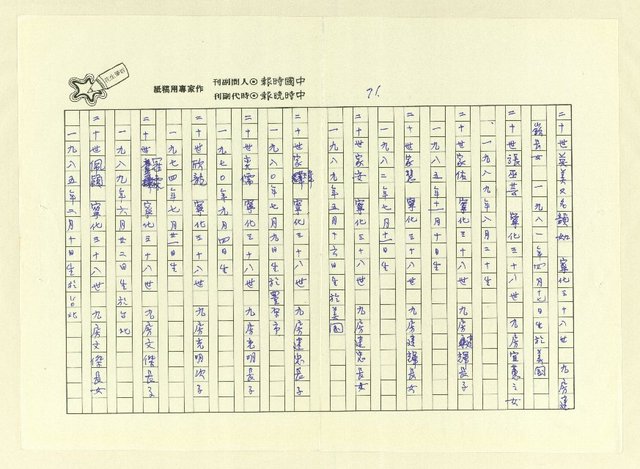 中國時報⊙人間副刊
中時晚報⊙時代副刊
作家專用稿紙
71.
二十世英美又名韻如 寧化三十八世 九房建
嵩長女 一九八一年四月十一日生於美國
二十世 寧化三十八世 九房宜憲三女
一九八九年八月二十生
二十世家佑 寧化三十八世 九房 輝長子
一九八五年十一月十日生
二十世家慧 寧化三十八世 九房建輝長女
一九八二年七月十二日生
二十世家安 寧化三十八世 九房建忠長女
一九八九年五月十六日生於美國
二十世家 寧化三十八世 九房建忠長子
一九八〇年七月九日生於豐原市
二十世奕霈 寧化三十八世 九房光明長子
一九七〇年九月四日生
二十世欣龍 寧化三十八世 九房光明次子
一九七四年七月廿一日生
二十世 寧化三十八世 九房文傑長子
一九八九年六月廿二日生於台北
二十世佩穎 寧化三十八世 九房文傑長女
一九八五年二月十日生於台北